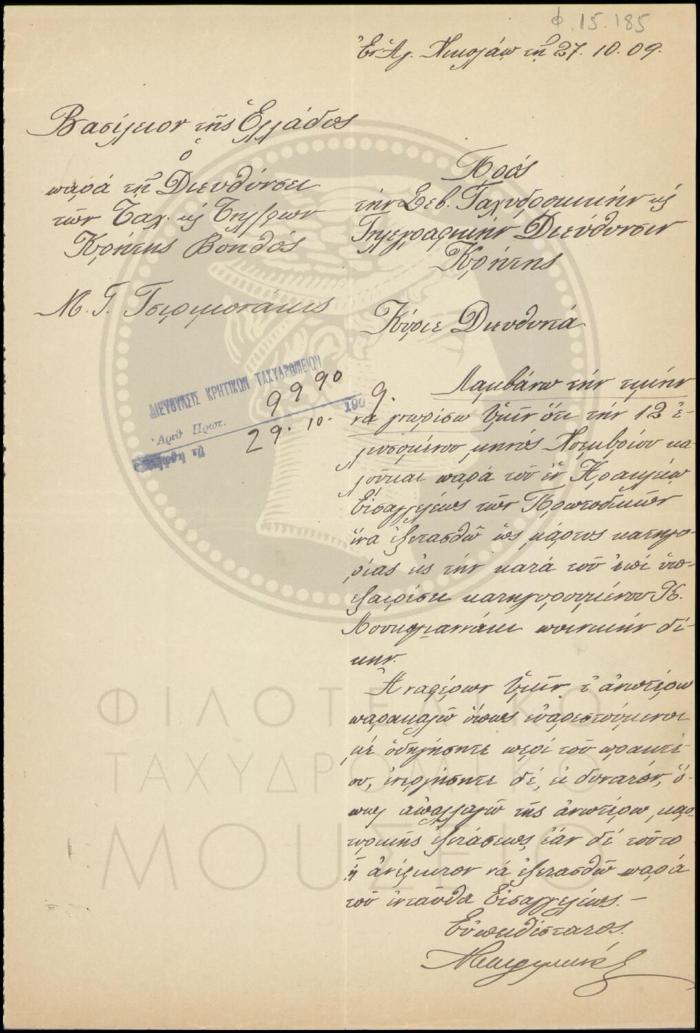 Φ.15.185
Ἐν Ἁγ. Νικολάῳ τῇ 27.10.09.
Βασίλειον τῆς Ἑλλάδος
ὁ
παρὰ τῇ Διευθύνσει
τῶν Ταχ. κς Τηλγρφων
Κρήτης Βοηθός
Μ. Γ. Τσιριμονάκις
Πρός
τὴν Σεβ. Ταχυδρομικὴν κς
Τηλεγραφικὴν Διεύθυνσιν
Κρήτης
Κύριε Διευθυντά
ΔΙΕΥΘΥΝΣΙΣ ΚΡΗΤΙΚΩΝ ΤΑΧΥΔΡΟΜΕΙΩΝ
Ἀριθ. Πρωτ. 9990
29.10. 1909.
Λαμβάνω τὴν τιμὴν
νὰ γνωρίσω Ὑμῖν ὅτι τὴν 12 ἐ-
πομένου μηνός Νοεμβρίου κα-
λοῦμαι παρὰ τοῦ ἐν Ἡρακλείῳ
Εἰσαγγελέως τῶν Πρωτοδικῶν
ἵνα ἐξετασθῶ ὡς μάρτυς κατηγο-
ρίας εἰς τὴν κατὰ τοῦ ἐπὶ ὑπε-
ξαιρέσει κατηγορουμένου Κ.
ποινικὴν δί-
κην.
Ἀναφέρων Ὑμῖν τ' ἀνωτέρω
παρακαλῶ ὅπως εὐαρεστούμενοι
μὲ ὁδηγήσητε περὶ τοῦ πρακτέ-
ου, ἐνεργήσητε δέ, εἰ δυνατόν, ὅ-
πως ἀπαλλαγῶ τῆς ἀνωτέρω μαρ-
τυρικῆς ἐξετάσεως ἐὰν δὲ τοῦτο
ᾖ ἀνέφικτον νὰ ἐξετασθῶ παρὰ
τοῦ ἐνταῦθα Εἰσαγγελέως.-
Εὐπειθέστατος
ΦΙΛΟΤΕΛΙΚΟ
ΤΑΧΥΔΡΟΜΙΚΟ
ΜΟΥΣΕΙΟ